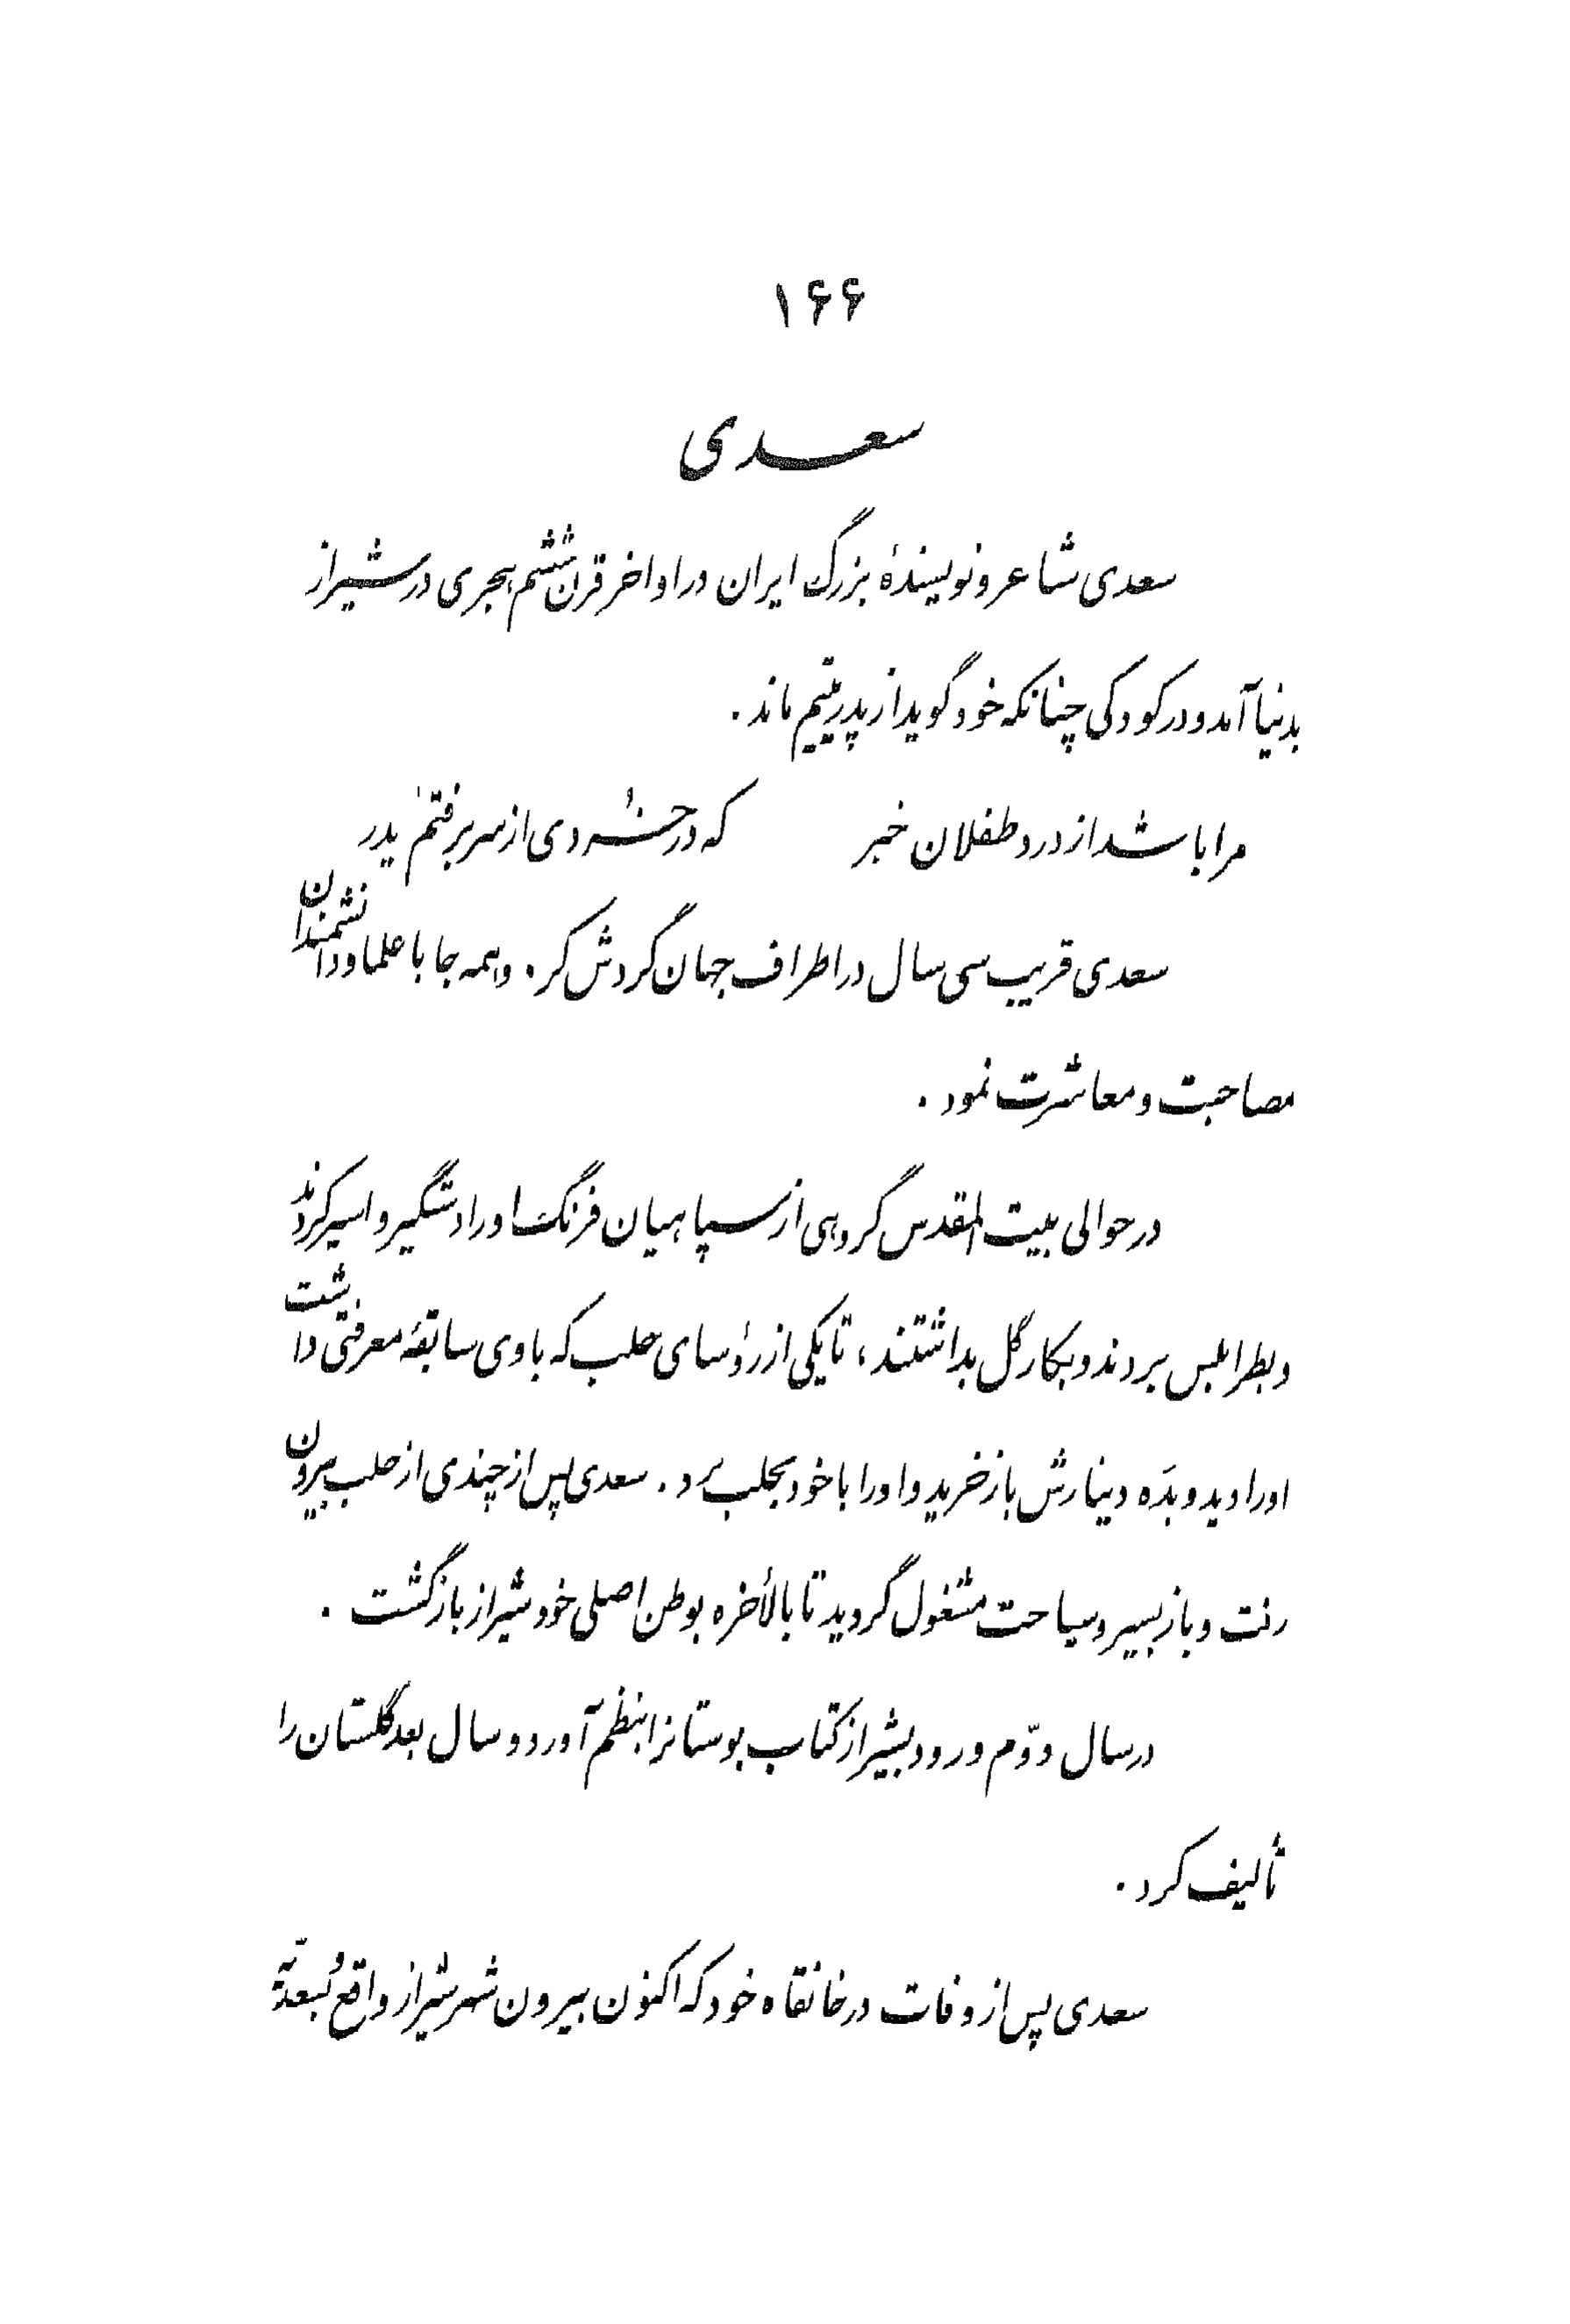 ۱۶۶
سعدی
سعدی شاعر و نویسندهٔ بزرگ ایران در اواخر قرن ششم هجری در شیراز
بدنیا آمد و در کودکی چنانکه خود گوید از پدر یتیم ماند .
مرا باشد از درد طفلان خبر که در خُردی از سر برفتم پدر
سعدی قریب سی سال در اطراف جهان گردش کرد و همه جا با علما و دانشمندان
مصاحبت و معاشرت نمود .
در حوالی بیت المقدس گروهی از سپاهیان فرنگ او را دستگیر و اسیر کردند
و بطرابلس بردند و بکار گل بداشتند ، تا یکی از رؤسای حلب که با وی سابقهٔ معرفتی داشت
او را دید و بدَه دینارش باز خرید و او را با خود بحلب بُرد . سعدی پس از چندی از حلب بیرون
رفت و باز بسیر و سیاحت مشغول گردید تا بالأخره بوطن اصلی خود شیراز بازگشت .
در سال دوّم ورود بشیراز کتاب بوستانرا بنظم آورد و سال بعد گلستان را
تألیف کرد .
سعدی پس از وفات در خانقاه خود که اکنون بیرون شهر شیراز واقع و بسعدیّه